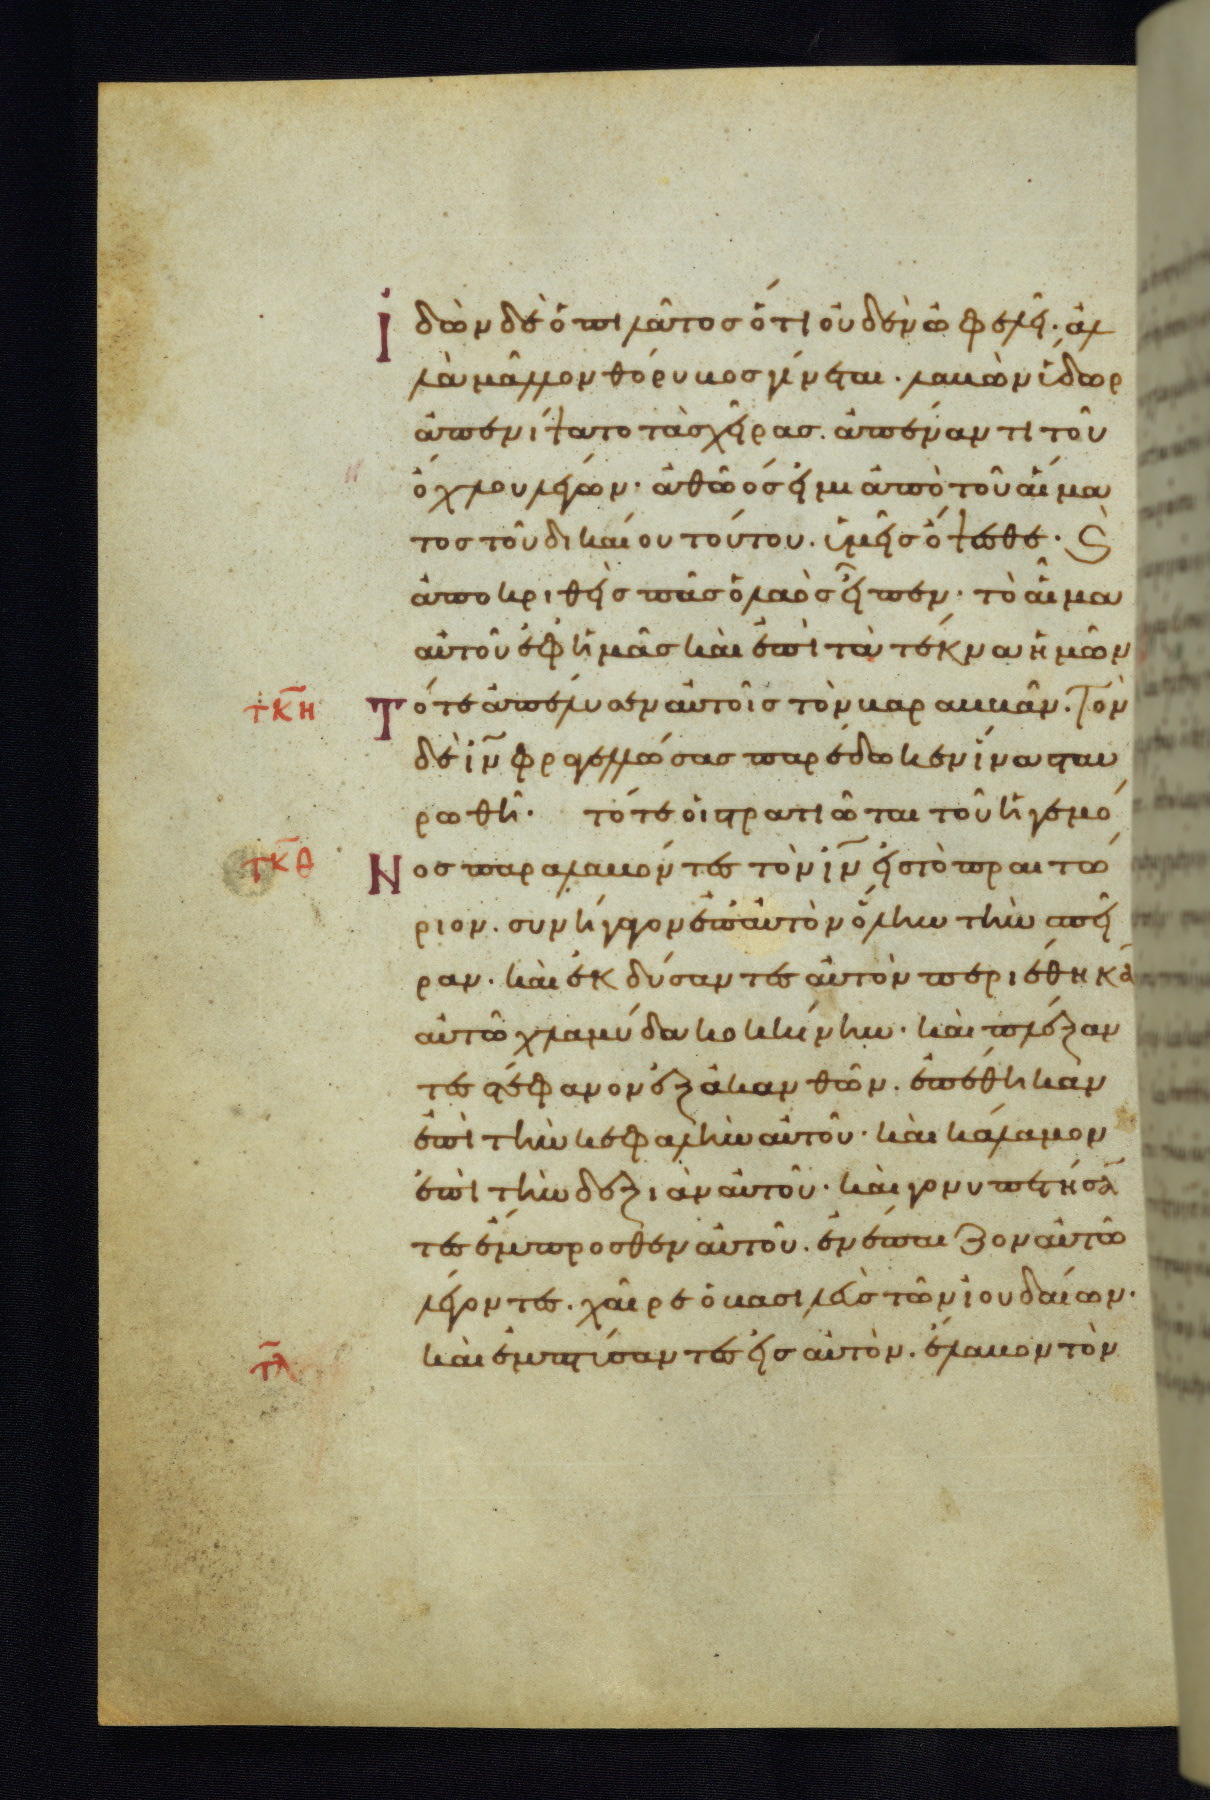 Ἰδὼν δὲ ὁ πιλάτος ὅτι οὐδὲν ὠφελεῖ· ἀλ
λὰ μᾶλλον θόρυβος γίνεται· λαβὼν ὕδωρ
ἀπενίψατο τὰς χεῖρας. ἀπέναντι τοῦ
ὄχλου λέγων· ἀθῶός εἰμι ἀπὸ τοῦ αἵμα
τος τοῦ δικαίου τούτου. ὑμεῖς ὄψεσθε· Ϗ
ἀποκριθεὶς πᾶς ὁ λαὸς εἶπεν· τὸ αἷμα
αὐτοῦ ἐφ' ἡμᾶς καὶ ἐπὶ τὰ τέκνα ἡμῶν
τκη Τότε ἀπέλυσεν αὐτοῖς τὸν βαραββᾶν. Τὸν
δὲ ιν φραγελλώσας παρέδωκεν ἵνα σταυ
ρωθῆ· τότε οἱ στρατιῶται τοῦ ἡγεμό
τκθ Νος παραλαβόντες τὸν ιν εἰς τὸ πραιτώ
ριον. συνήγαγον ἐπ' αὐτὸν ὅλην τὴν σπεῖ
ραν. καὶ ἐκδύσαντες αὐτὸν περιέθηκαν
αὐτῶ χλαμύδα κοκκίνην· καὶ πλέξαν
τες στέφανον ἐξ ἀκανθῶν. ἐπέθηκαν
ἐπὶ τὴν κεφαλὴν αὐτοῦ· καὶ κάλαμον
ἐπὶ τὴν δεξιὰν αὐτοῦ· καὶ γονυπετήσαν
τες ἔμπροσθεν αὐτοῦ. ἐνέπαιζον αὐτῶ
λέγοντες. χαῖρε ὁ βασιλεὺς τῶν ἰουδαίων·
τλ καὶ ἐμπτύσαντες εἰς αὐτὸν. ἔλαβον τὸν